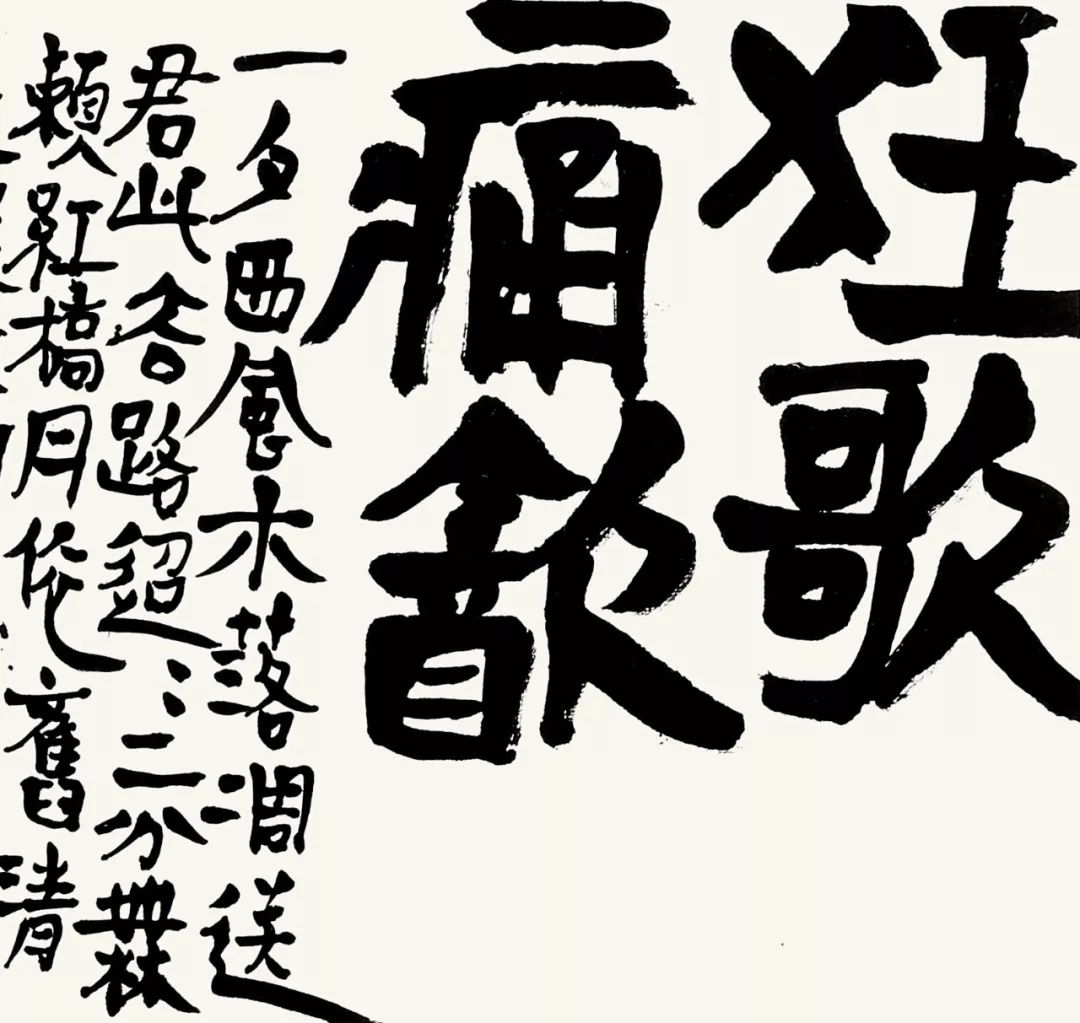 狂歌
痛㱃
一夕西風木落凋送
君此去路迢〻二分無
賴紅橋月依舊清